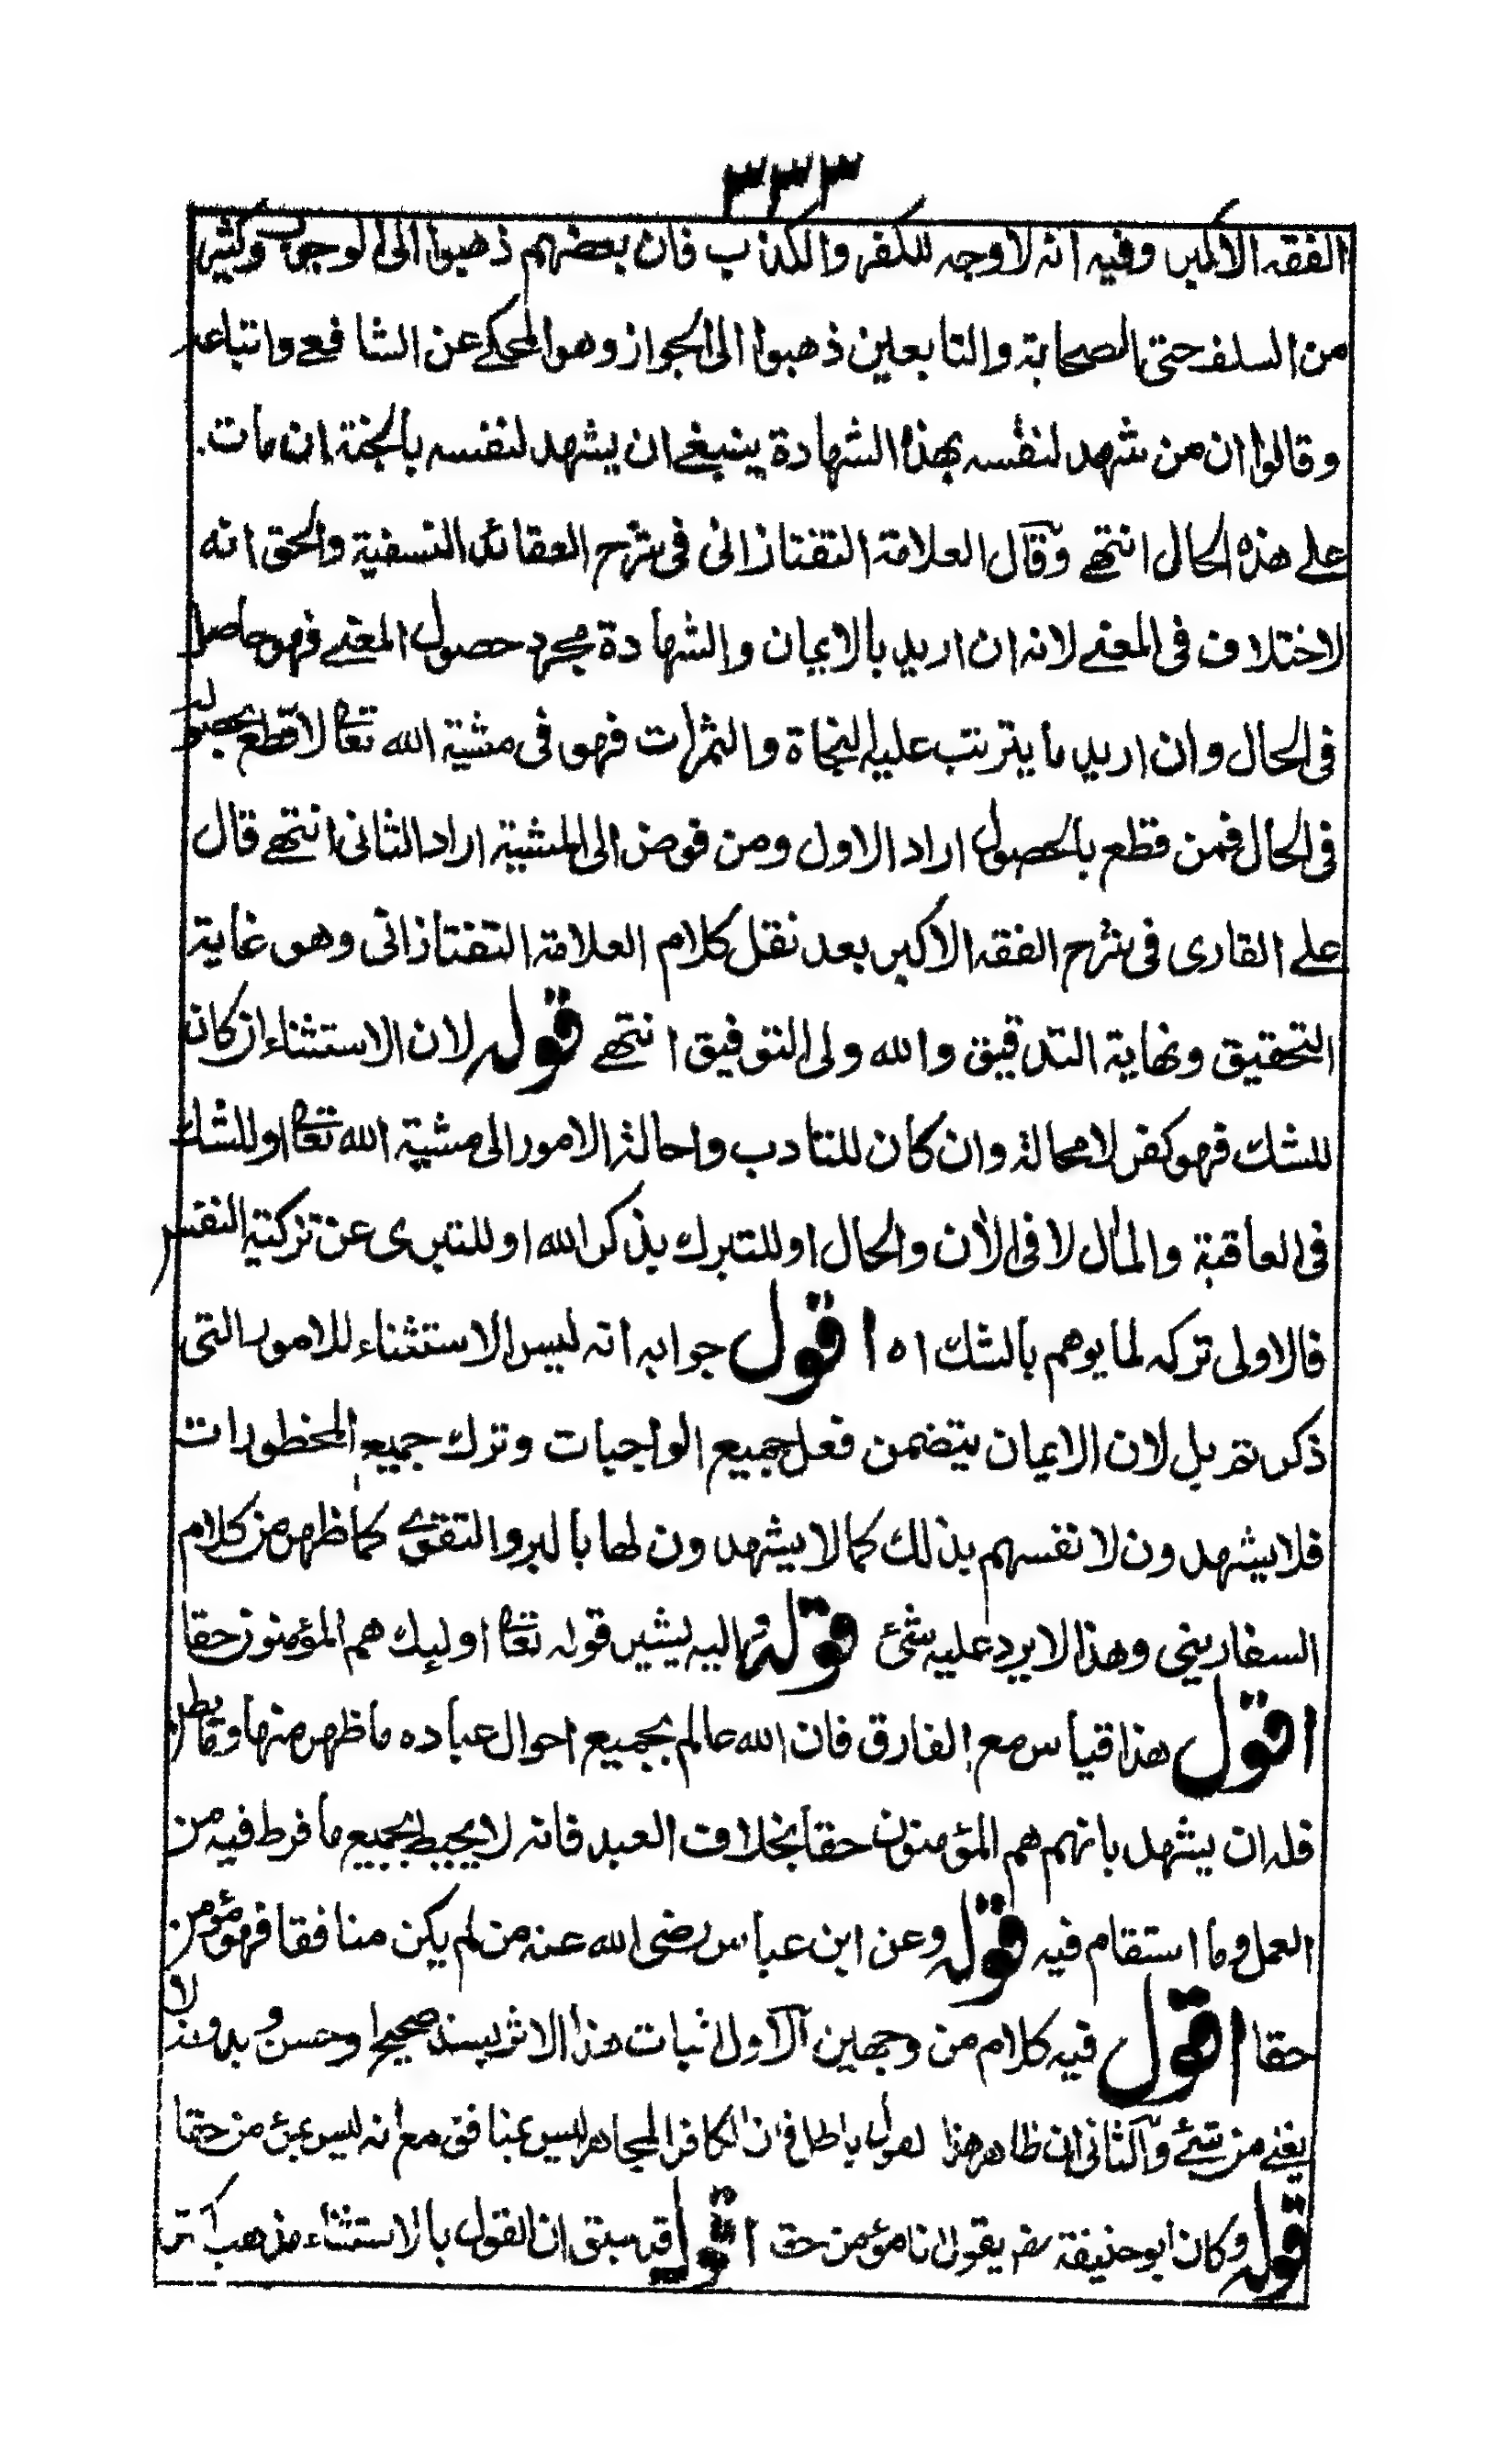 ٣٣٣
الفقه الاكبر وفيه انه لا وجه للكفر والكذب فان بعضهم ذهبوا الى الوجوب وكثير
من السلف حتى الصحابة والتابعين ذهبوا الى الجواز وهو المحكے عن الشافعے واتباعه
وقالوا ان من شهد لنفسه بهذه الشهادة ينبغے ان يشهد لنفسه بالجنة ان مات
علے هذه الحال انتهے وقال العلامة التفتازانى فى شرح العقائد النسفية والحق انه
لا ختلاف فى المعنے لانه ان اريد بالايمان والشهادة مجرد حصول المعنے فهو حاصل
فى الحال وان اريد ما يترتب عليه النجاة والثمرات فهو فى مشية الله تعا لا قطع بحصوله
فى الحال فمن قطع بالحصول اراد الاول ومن فوض الى المشية اراد الثانى انتهے قال
علے القارى فى شرح الفقه الاكبر بعد نقل كلام العلامة التفتازانى وهو غاية
التحقيق ونهاية التدقيق والله ولى التوفيق انتهے قوله لان الاستثناء ان كان
للشك فهو كفر لا محالة وان كان للتادب واحالة الامور الى مشية الله تعا او للشك
فى العاقبة والمال لا فى الأن والحال او للتبرك بذكر الله او للتبرى عن تزكية النفس
فالاولى تركه لما يوهم بالشك اه اقول جوابه انه ليس الاستثناء للامور التى
ذكرتم بل لان الايمان يتضمن فعل جميع الواجبات وترك جميع المخظورات
فلا يشهدون لانفسهم بذلك كما لا يشهدون لها بالبر والتقوے كما ظهر من كلام
السفارينى وهذا لا يرد عليه شئ قوله واليه يشير قوله تعا اولٓئك هم المؤمنون حقا
اقول هذا قياس مع الفارق فان الله عالم بجميع احوال عباده ما ظهر منها وما بطن
فله ان يشهد بانهم هم المؤمنون حقا بخلاف العبد فانه لا يحيط بجميع ما فرط فيه من
العمل وما استقام فيه قوله وعن ابن عباس رضى الله عنه من لم يكن منافقا فهو مؤمن
حقا اقول فيه كلام من وجهين الاول اثبات هذا الاثر بسند صحيح او حسن وبدونه لا
يغنے من شئے والثانى ان ظاهر هذا القول باطل فان الكافر المجاهر ليس بمنافق مع انه ليس بمؤمن حقا
قوله وكان ابو حنيفة رض يقول انا مؤمن حقا اقول قد سبق ان القول بالاستثناء مذهب اكثر